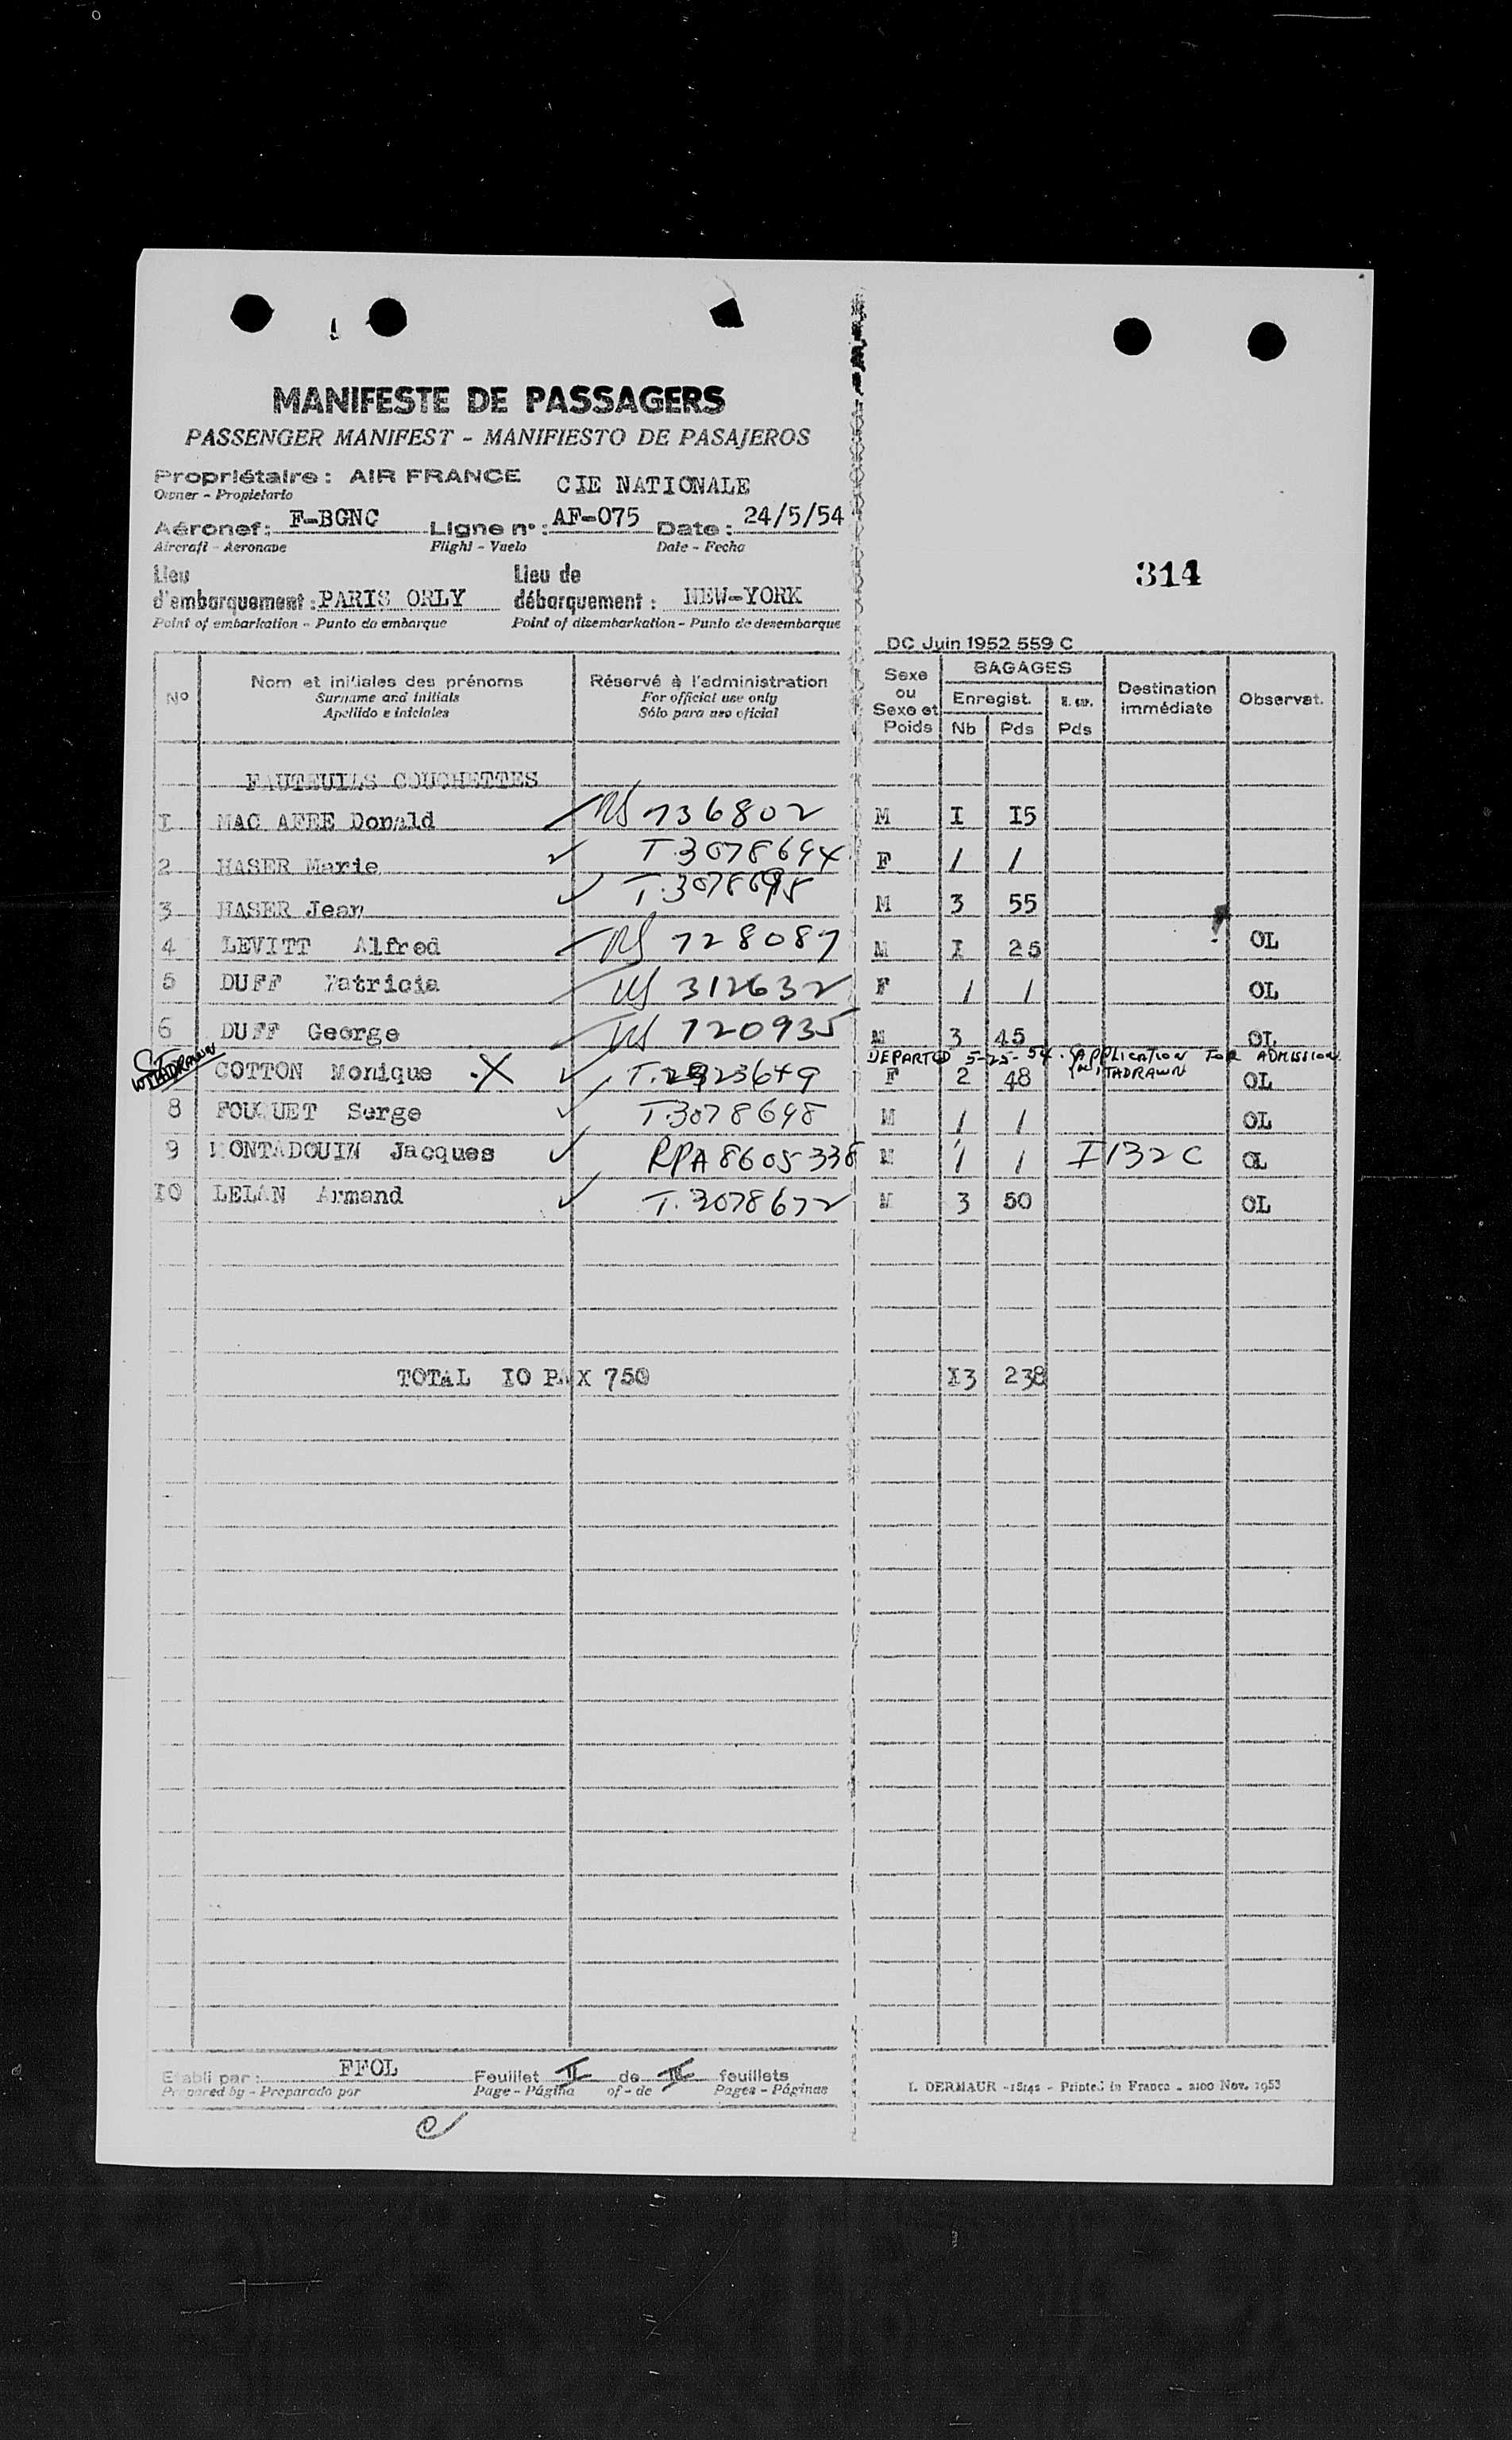 MANIFESTE DE PASSAGERS
PASSENGER MANIFEST - MANIFIESTO DE PASAJEROS
Propriétaire : AIR FRANCE CIE NATIONALE
Owner - Propietario
Aéronef : F-BGNC Ligne n° : AF-075 Date : 24/5/54
Aircraft - Aeronave Flight - Vuelo Date - Fecha
314
Lieu d'embarquement : PARIS ORLY Lieu de débarquement : NEW-YORK
Point of embarkation - Punto de embarque Point of disembarkation - Punto de desembarque
DC Juin 1952 559 C
N° Nom et initiales des prénoms Réservé à l'administration Sexe ou Sexe et Poids BAGAGES Destination immédiate Observat.
Surname and initials For official use only Enregist.
Apellido e iniciales Sólo para uso oficial Nb Pds Pds
FAUTEUILS COUCHETTES
I MAC AFEE Donald US 736802 M I I5
2 HASER Marie T.3078694 F / /
3 HASER Jean T.3078695 M 3 55
4 LEVITT Alfred US 728087 M I 25 OL
5 DUFF Patricia US 312632 F / / OL
6 DUFF George US 720935 M 3 45 OL
DEPARTED 5-25-54. (APPLICATION FOR ADMISSION WITADRAWN
WITADRAWN COTTON Monique .X T.2923649 F 2 48 OL
8 FOUQUET Serge T.3078698 M / / OL
9 MONTADOUIN Jacques RPA 8605338 M / / I 132 C OL
IO LELAN Armand T.3078672 M 3 50 OL
TOTAL IO PAX 750 I3 238
Etabli par : FFOL Feuillet II de III feuillets
Prepared by - Preparado por Page - Página of - de Pages - Páginas
I. DERMAUR - 18142 - Printed in France - 2100 Nov. 1953